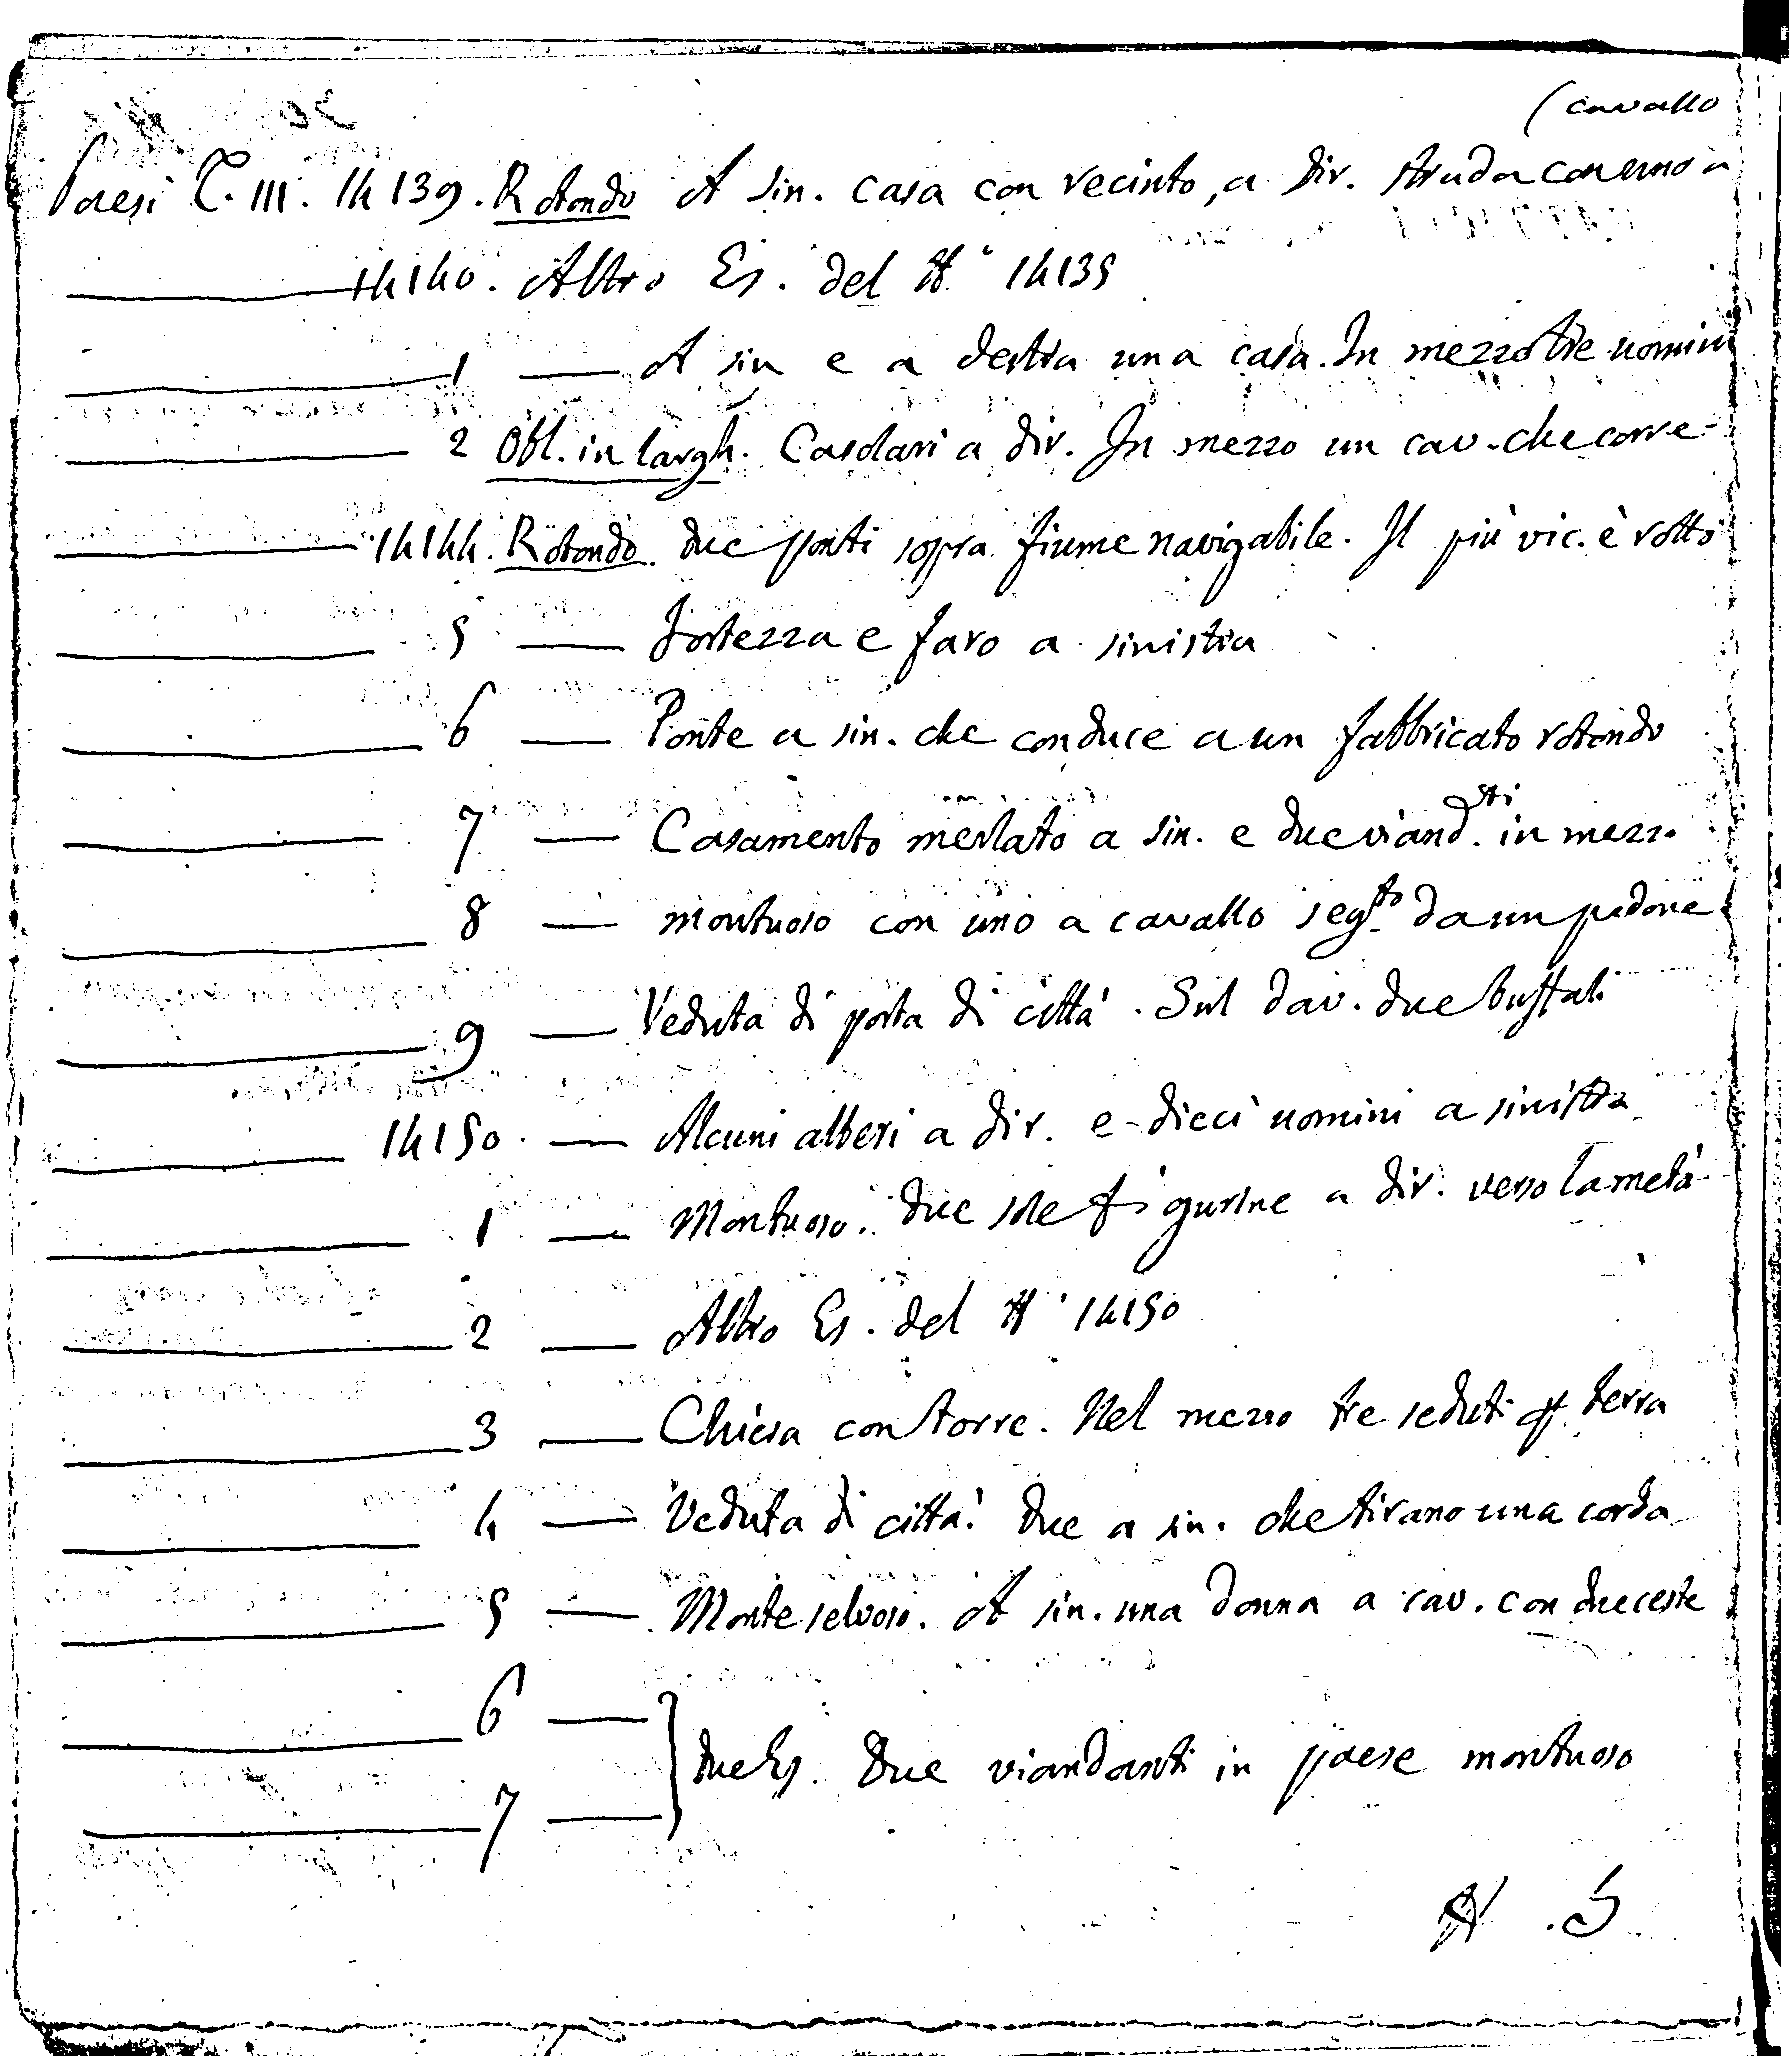 (cavallo
Paesi T. III. 14139. Rotondo A sin. casa con recinto, a dir. strada con uno a
14140. Altro Es. del N.° 14135
1 — A sin e a destra una casa. In mezzo tre uomini
2 Obl. in largh. Casolari a dir. In mezzo un cav. che corre
14144. Rotondo. due ponti sopra fiume navigabile. Il più vic. è rotto
5 — Fortezza e faro a sinistra
6 — Ponte a sin. che conduce a un fabbricato rotondo
7 — Casamento merlato a sin. e due viand.ti in mezzo
8 — montuoso con uno a cavallo seg.to da un pedone
9 — Veduta di porta di città. Sul dav. due buffali
14150. — Alcuni alberi a dir. e dieci uomini a sinistra
1 — Montuoso. due sole figurine a dir. verso la metà
2 — Altro Es. del N.° 14150
3 — Chiesa con torre. Nel mezzo tre seduti p. terra
4 — Veduta di città. Due a sin. che tirano una corda
5 — Monte selvoso. A sin. una donna a cav. con due ceste
6 —
due Es. Due viandanti in paese montuoso
7 —
N .5